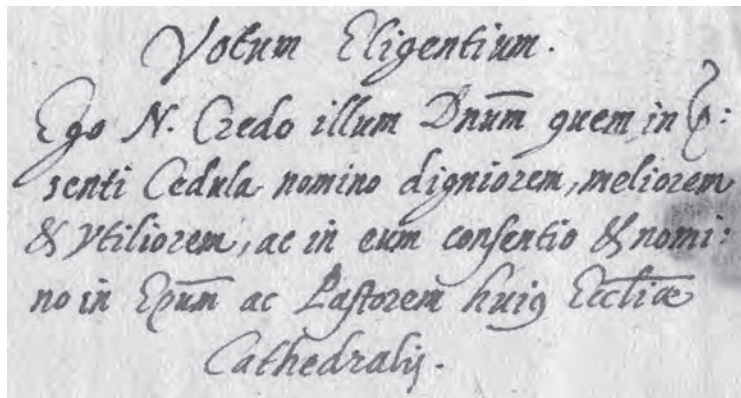 Votum Eligentium.
Ego N. Credo illum Dnum̄ quem in p̄:
senti Cedula nomino digniorem, meliorem
& Vtiliorem, ac in eum consentio & nomi:
no in Ep̄um ac Pastorem huiꝰ Eccliæ
Cathedralis.